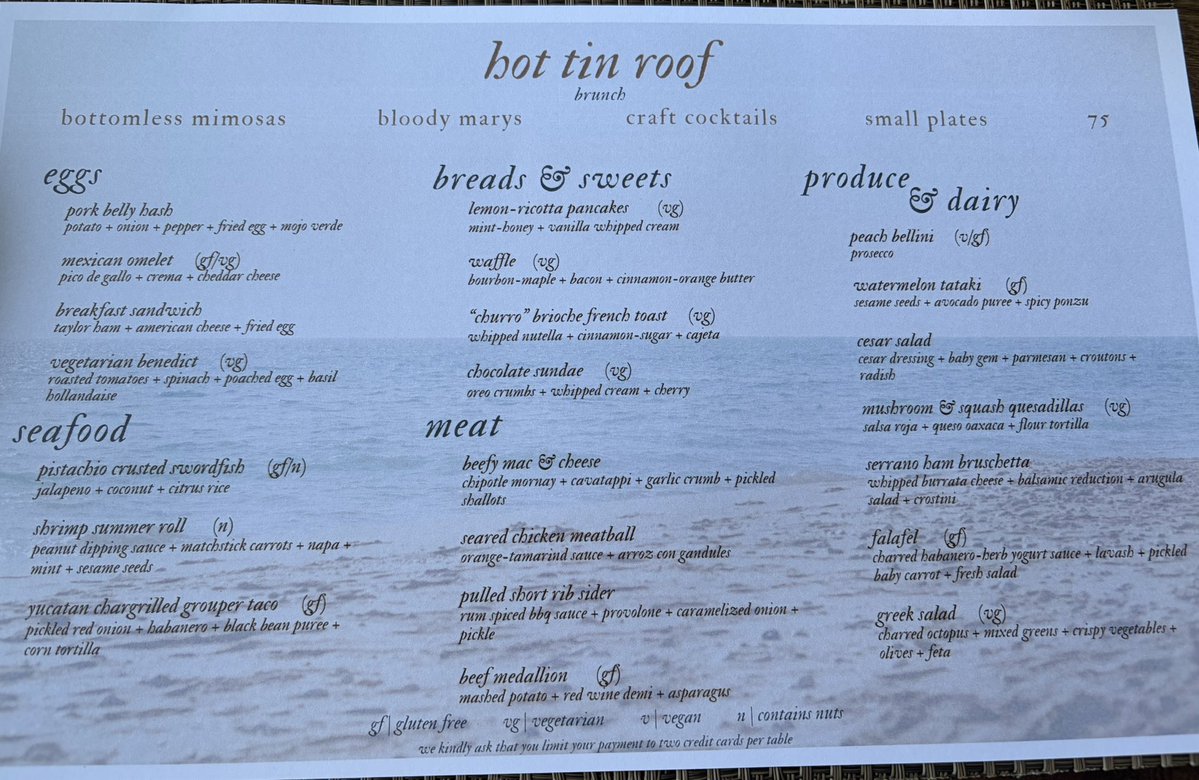 hot tin roof
brunch
bottomless mimosas bloody marys craft cocktails small plates 75
eggs
pork belly hash
potato + onion + pepper + fried egg + mojo verde
mexican omelet (gf/vg)
pico de gallo + crema + cheddar cheese
breakfast sandwich
taylor ham + american cheese + fried egg
vegetarian benedict (vg)
roasted tomatoes + spinach + poached egg + basil
hollandaise
seafood
pistachio crusted swordfish (gf/n)
jalapeno + coconut + citrus rice
shrimp summer roll (n)
peanut dipping sauce + matchstick carrots + napa +
mint + sesame seeds
yucatan chargrilled grouper taco (gf)
pickled red onion + habanero + black bean puree +
corn tortilla
breads & sweets
lemon-ricotta pancakes (vg)
mint-honey + vanilla whipped cream
waffle (vg)
bourbon-maple + bacon + cinnamon-orange butter
"churro" brioche french toast (vg)
whipped nutella + cinnamon-sugar + cajeta
chocolate sundae (vg)
oreo crumbs + whipped cream + cherry
meat
beefy mac & cheese
chipotle mornay + cavatappi + garlic crumb + pickled
shallots
seared chicken meatball
orange-tamarind sauce + arroz con gandules
pulled short rib sider
rum spiced bbq sauce + provolone + caramelized onion +
pickle
beef medallion (gf)
mashed potato + red wine demi + asparagus
produce
& dairy
peach bellini (v/gf)
prosecco
watermelon tataki (gf)
sesame seeds + avocado puree + spicy ponzu
cesar salad
cesar dressing + baby gem + parmesan + croutons +
radish
mushroom & squash quesadillas (vg)
salsa roja + queso oaxaca + flour tortilla
serrano ham bruschetta
whipped burrata cheese + balsamic reduction + arugula
salad + crostini
falafel (gf)
charred habanero-herb yogurt sauce + lavash + pickled
baby carrot + fresh salad
greek salad (vg)
charred octopus + mixed greens + crispy vegetables +
olives + feta
gf | gluten free vg | vegetarian v | vegan n | contains nuts
we kindly ask that you limit your payment to two credit cards per table